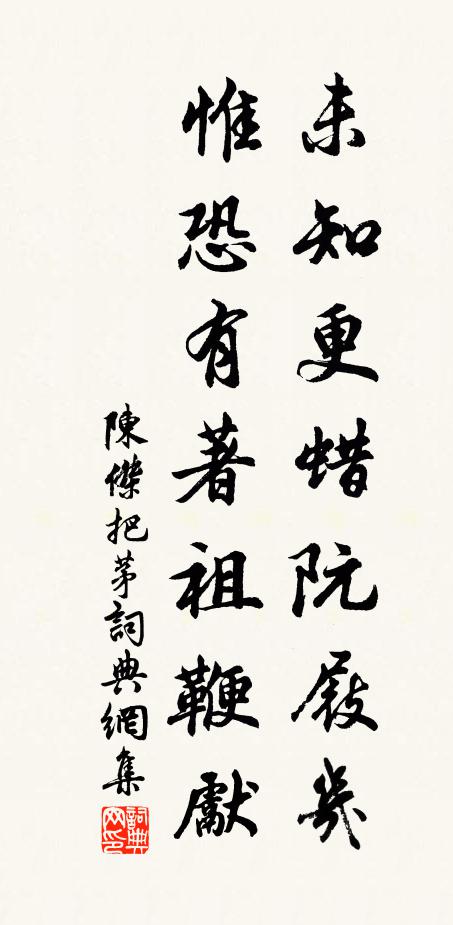 未知更蜡阮屐幾
惟恐有著祖鞭獻
陳傑把茅詞典網集
詞典网印